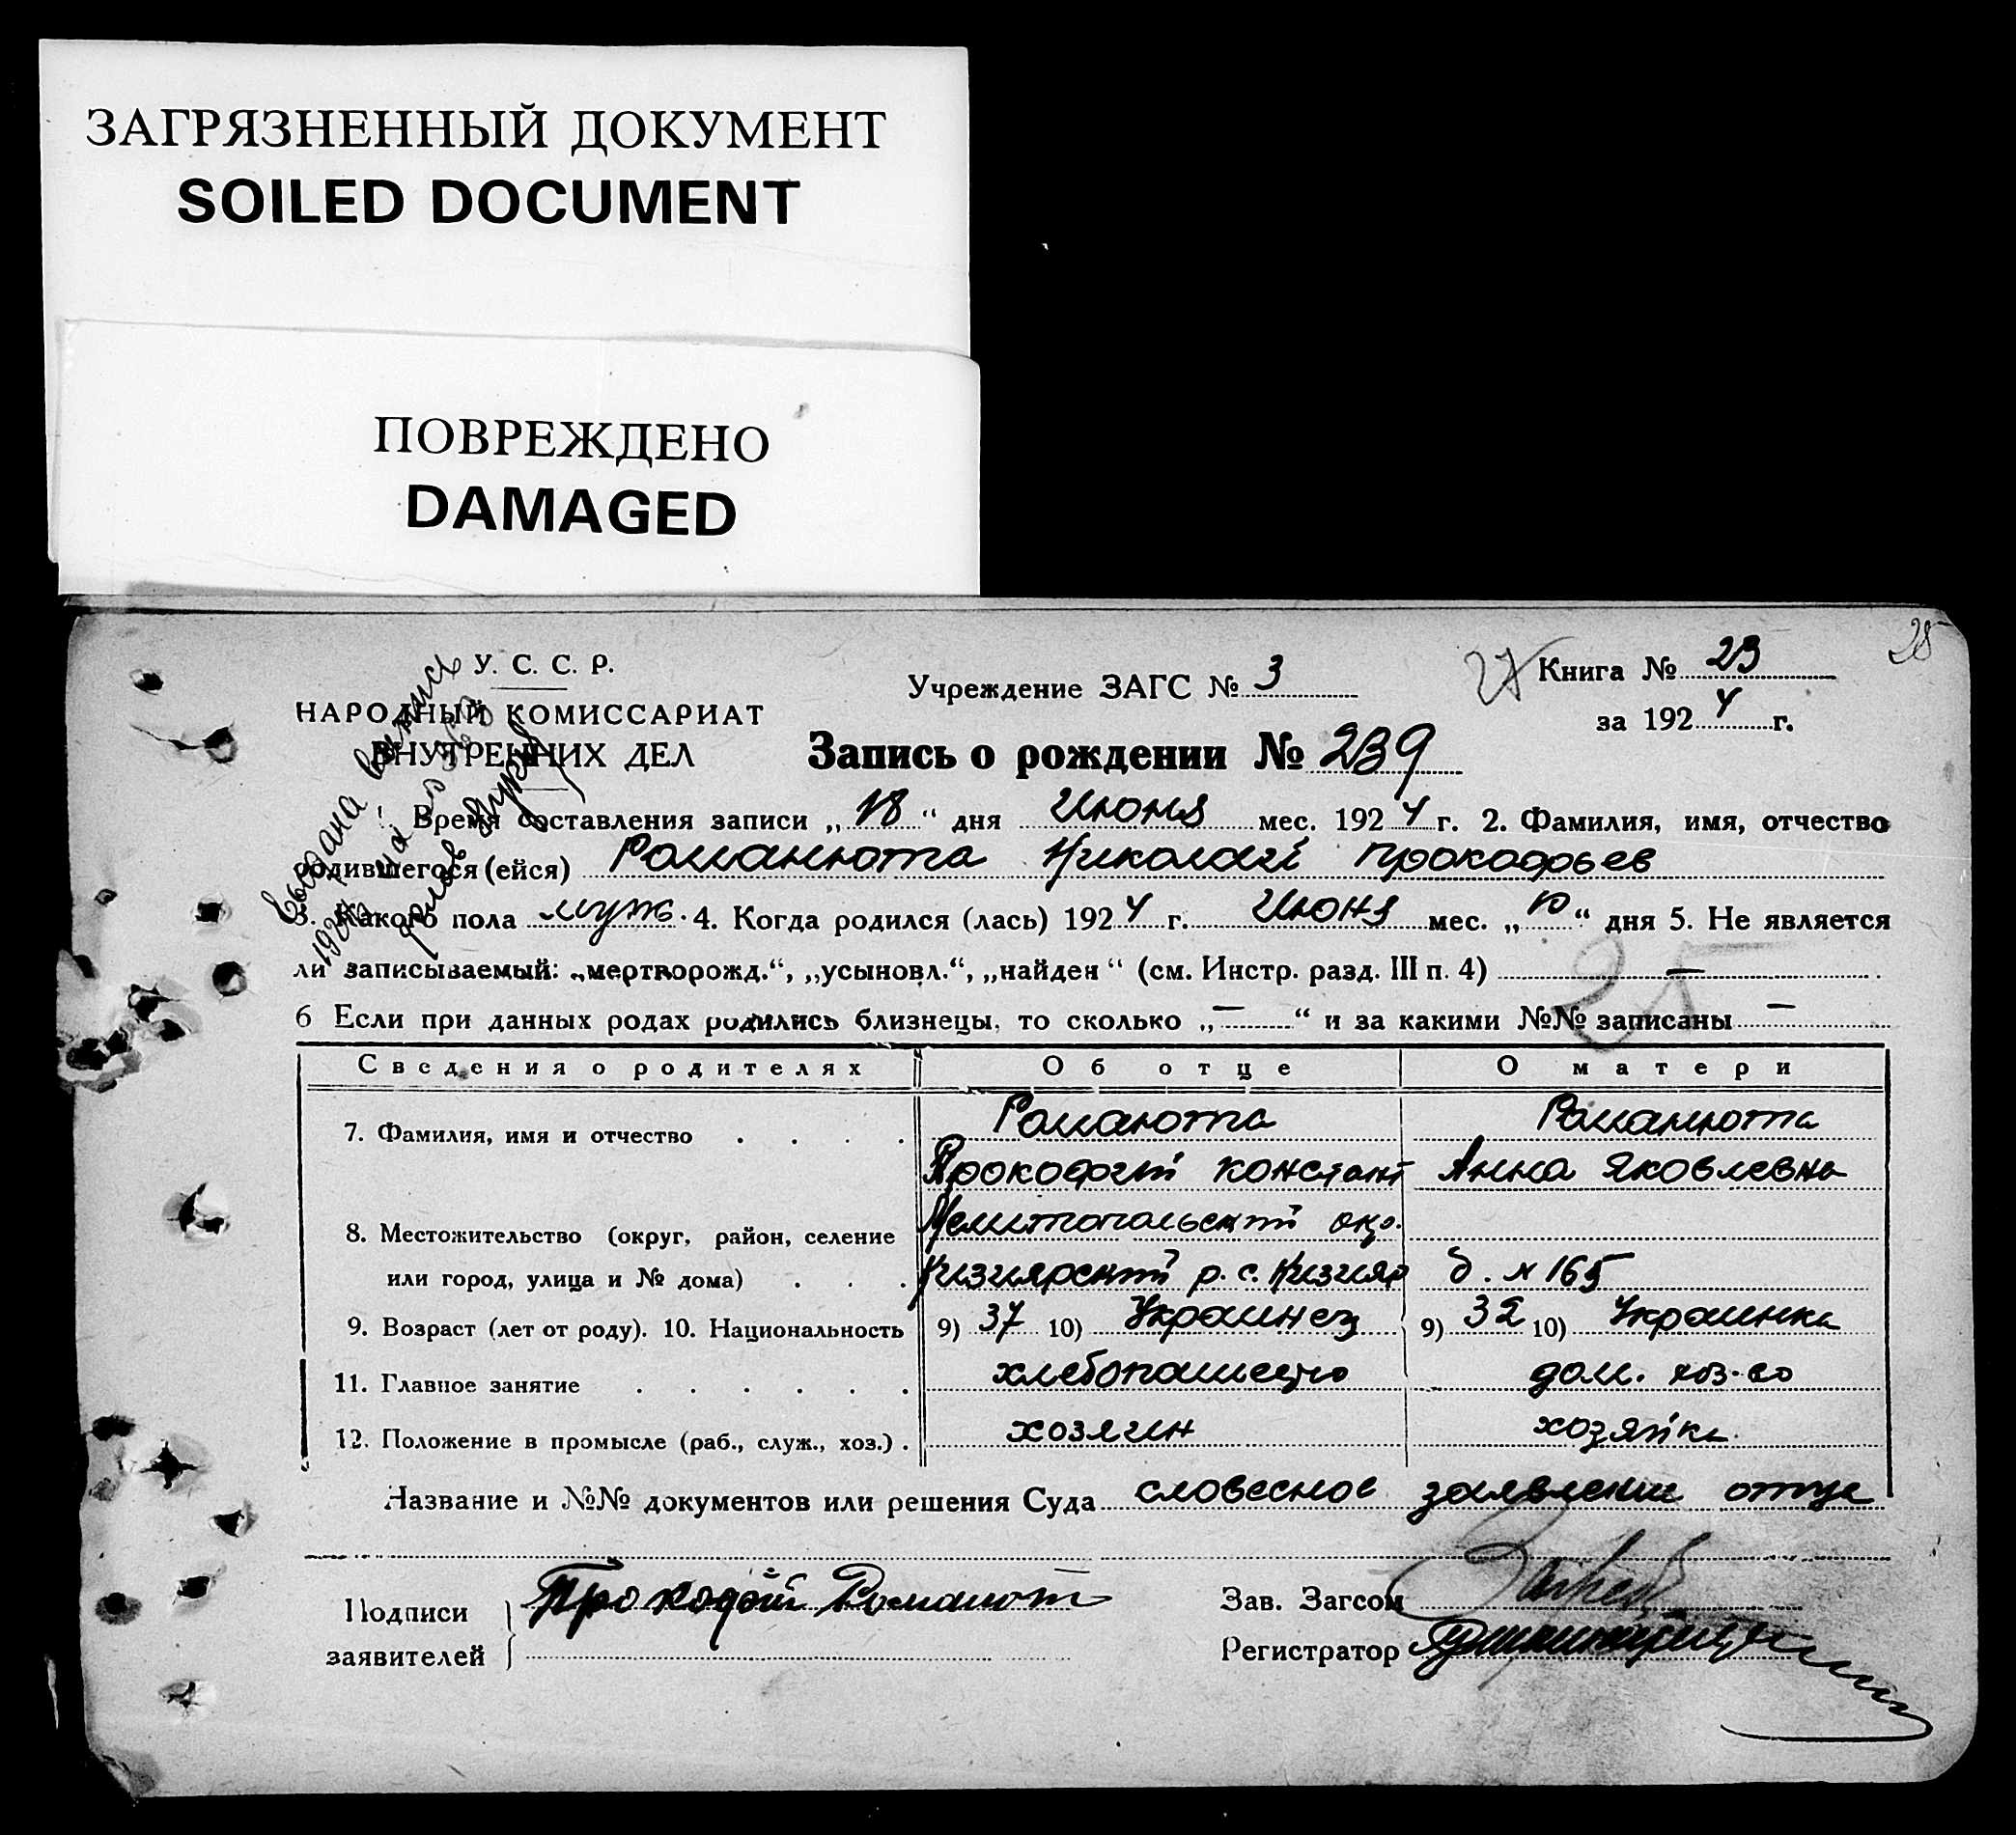 ЗАГРЯЗНЕННЫЙ ДОКУМЕНТ
SOILED DOCUMENT
ПОВРЕЖДЕНО
DAMAGED
У. С. С. Р.
НАРОДНЫЙ КОМИССАРИАТ
ВНУТРЕННИХ ДЕЛ
Учреждение ЗАГС № 3
Книга № 23
за 1924 г.
Запись о рождении № 239
Выдана выпись
Время составления записи „18“ дня Июня мес. 1924 г. 2. Фамилия, имя, отчество
родившегося (ейся) Романюта Николай Прокофьев
3. Какого пола муж. 4. Когда родился (лась) 1924 г. Июня мес. „10“ дня 5. Не является
ли записываемый: „мертворожд.“, „усыновл.“, „найден“ (см. Инстр. разд. III п. 4) —
6 Если при данных родах родились близнецы, то сколько „—“ и за какими №№ записаны —
Сведения о родителях Об отце О матери
7. Фамилия, имя и отчество . . . . Романюта Романюта
Прокофий Констант Анна Яковлевна
8. Местожительство (округ, район, селение Мелитопольский окр.
или город, улица и № дома) . . . Кизиярский р. с. Кизияр д. № 165
9. Возраст (лет от роду). 10. Национальность 9) 37 10) Украинец 9) 32 10) Украинка
11. Главное занятие . . . . . . хлебопашество дом. хоз-во
12. Положение в промысле (раб., служ., хоз.) . хозяин хозяйка
Название и №№ документов или решения Суда словесное заявление отца
Подписи Прокофий Романют Зав. Загсом
заявителей Регистратор